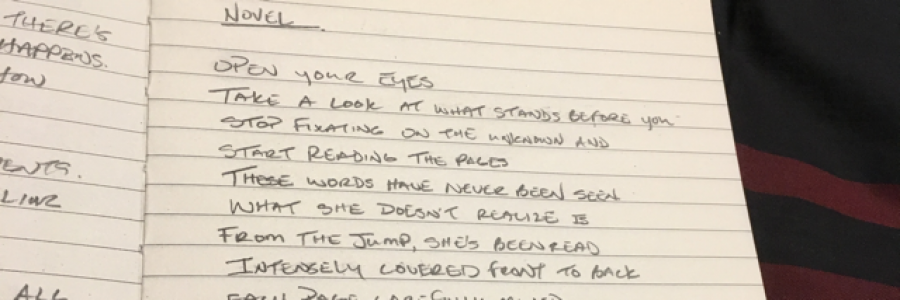 THERE'S
HAPPENS.
LINE
ALL
NOVEL
OPEN YOUR EYES
TAKE A LOOK AT WHAT STANDS BEFORE YOU
STOP FIXATING ON THE UNKNOWN AND
START READING THE PAGES
THESE WORDS HAVE NEVER BEEN SEEN
WHAT SHE DOESN'T REALIZE IS
FROM THE JUMP, SHE'S BEEN READ
INTENSELY COVERED FRONT TO BACK
EACH PAGE